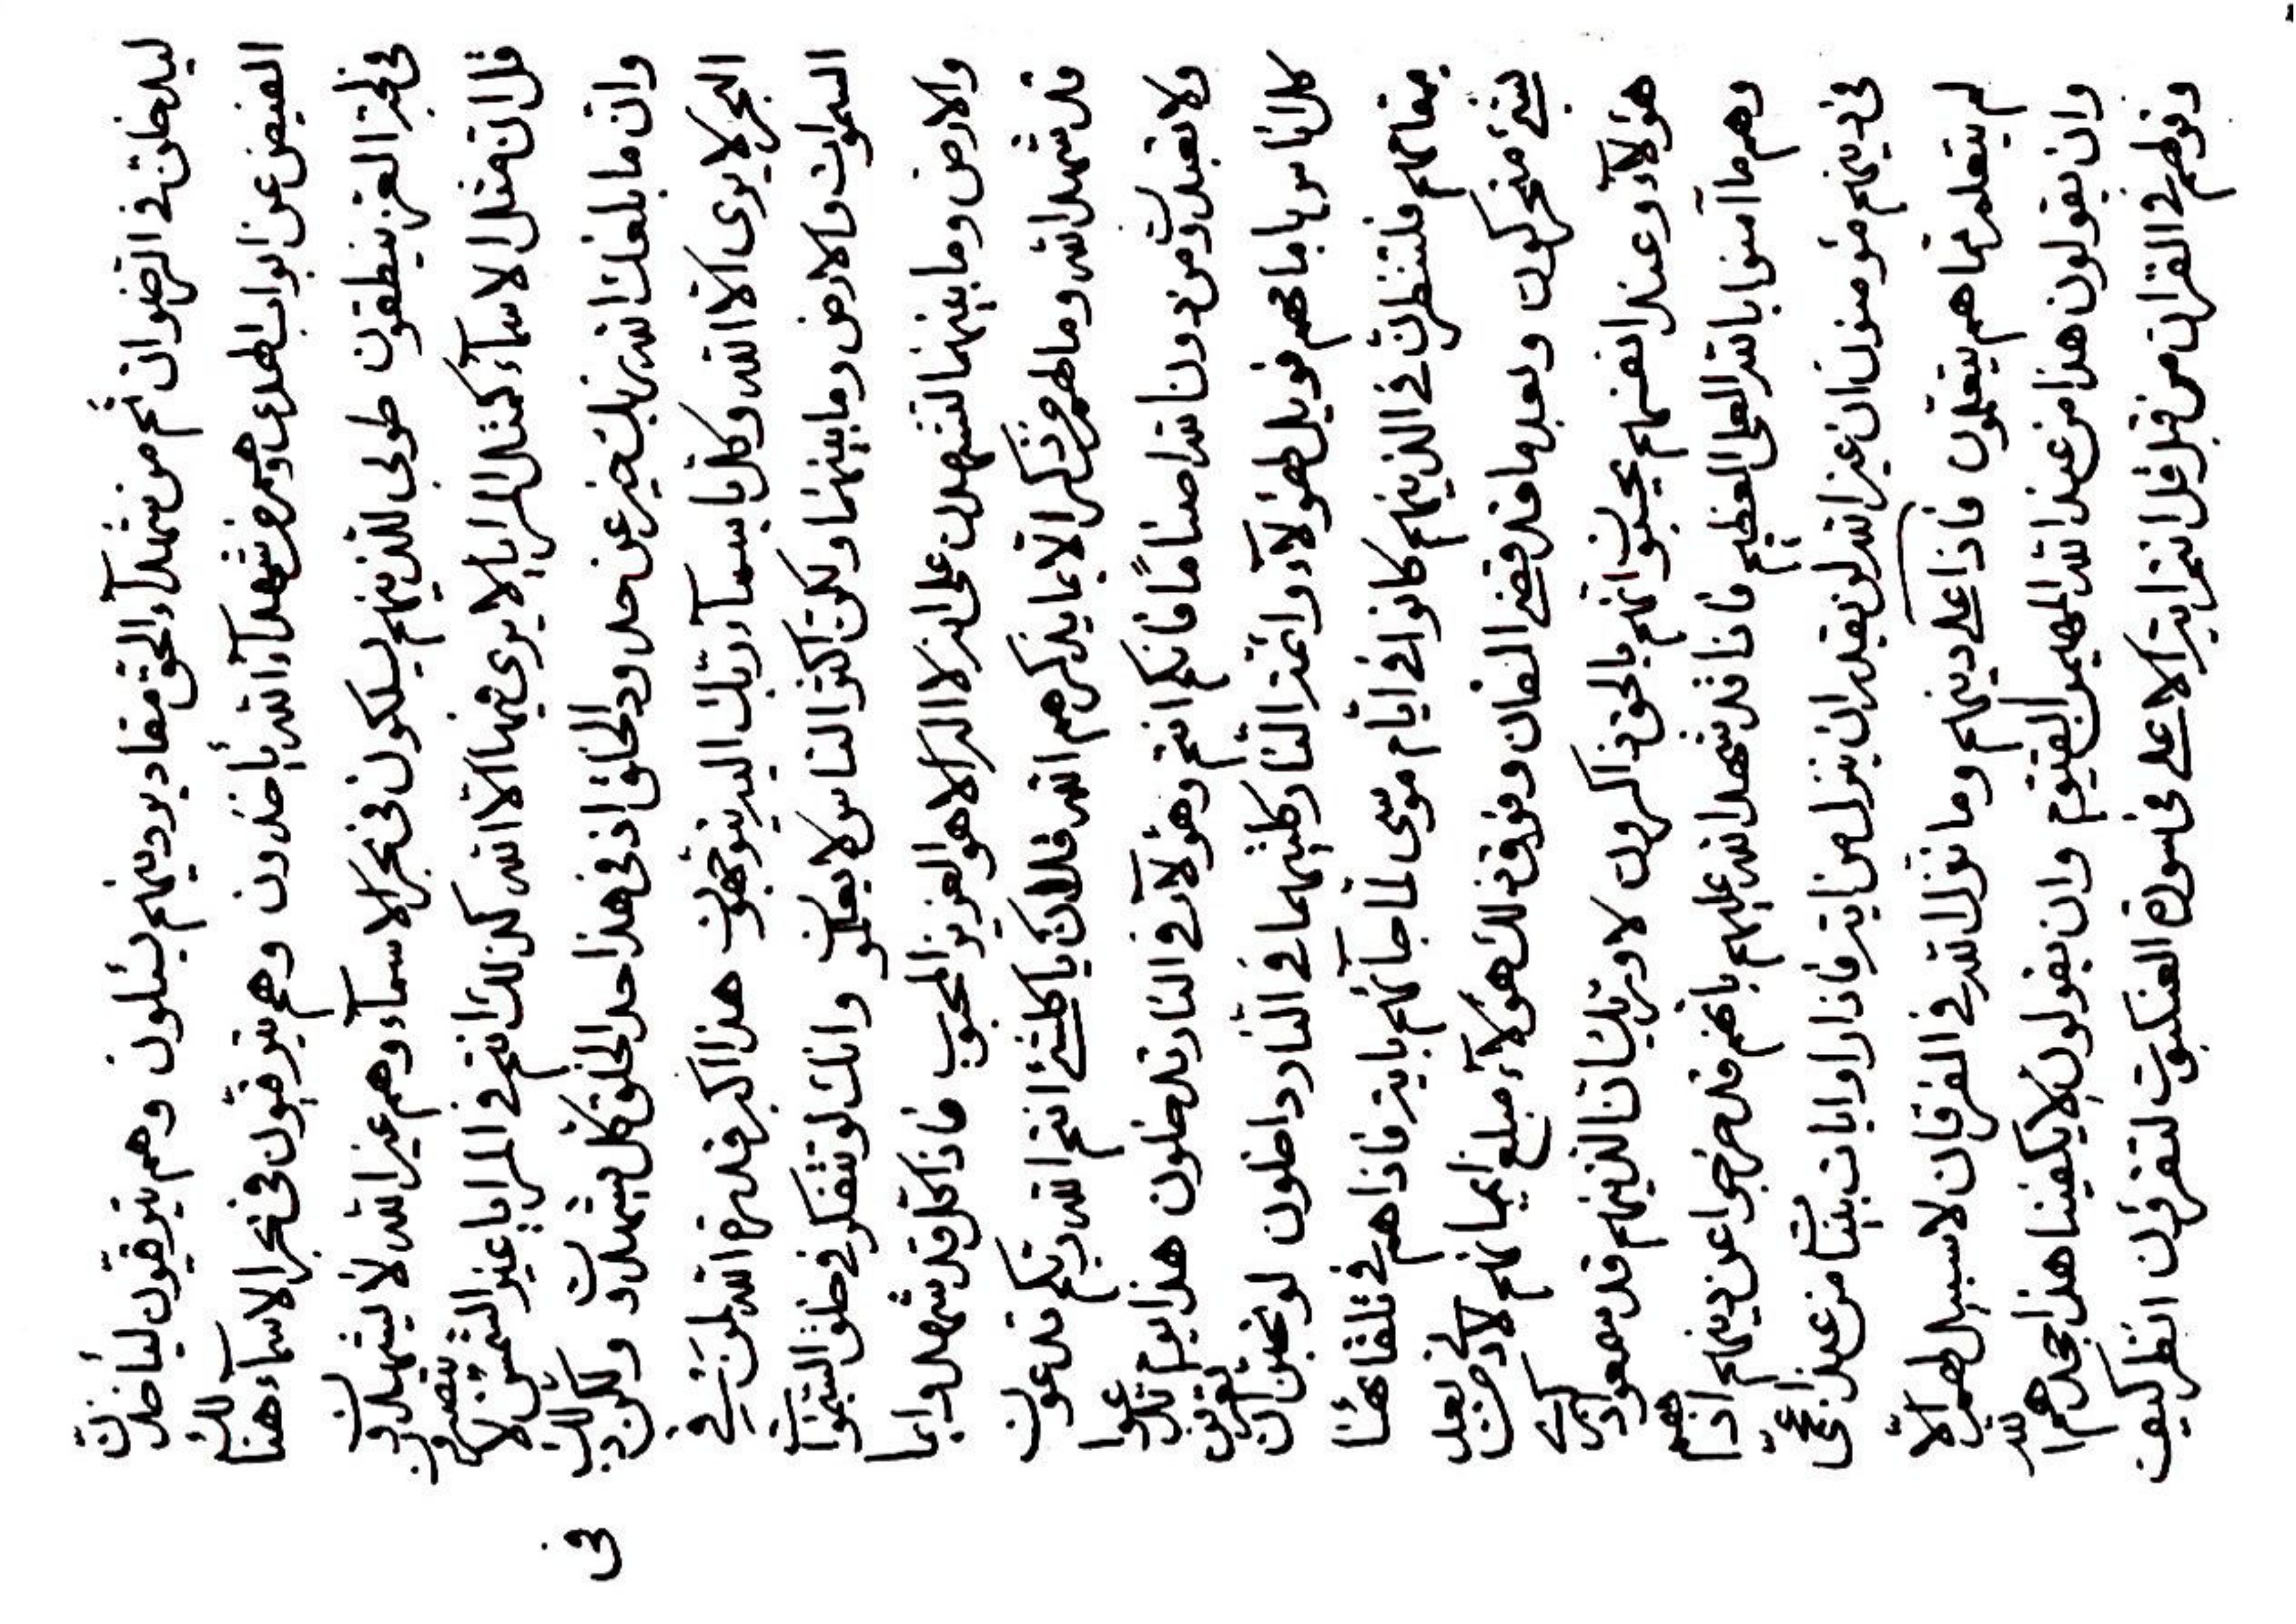 ليدخلن في الرضوان ثم من شهدآء الحق مقادير دينهم يسئلون وهم يترقبون ليأخذن
الفيض عن ابواب الهدى ومن شهدآء الله يأخذون وهم يترقبون في بحر الاسمآء هنالك
في لجة العز ينطقون طوبى للذينهم يسلكون في بحر الاسمآء وهم غير الله لا يشهدون
قل ان مثل الاسمآء كمثل المرايا لا يرى فيها الا الله كذلك انتم في المرايا غير الشمس لا تنظرون
وان ما بلغك الله ربك خير عن حدود الخلق اذ في هذا حد الخلق كل يشهدون ولكن ذلك
البحر لا يرى الا الله وكل باسمآء ربك اليه يتوجهون هذا اكبر قدرة الله لمن في
السموات والارض وما بينهما ولكن اكثر الناس لا يعلمون وانك لو تتفكر في خلق السموات
والارض وما بينهما لتشهدن على انه لا اله الا هو العزيز المحبوب فاذا كل قد شهدوا بما
قد شهد الله وما لهم من ذكر الا بما يذكرهم الله قل ان يا كلشئ انتم الله ربكم تدعون
ولا تعبدون من دون الله اصناما فانكم انتم وهؤلآء في النار تدخلون هذا يوم تدعوا
كل اناس بامامهم فويل لهؤلآء وائمة النار كلتيهما في النار داخلون لو نحبن ان تعرفن
مقامهم فلتنظرن في الذينهم كانوا في ايام موسى لما جآئهم باية فاذا هم في تلقائها
بشئ متحركون وبعدما قد قضى الفان وفوق ذلك هؤلآء مبلغ ايمانهم لادم من بعد
هؤلآء وعند انفسهم يحسبون انهم بالحق ذاكرون لا وربك ان الذينهم قد سمعوا ذكرى
وهم ما آمنوا بالله العلي العظيم فانا قد شهد الله عليهم بانهم قد خرجوا عن دينهم اذ انهم
في دينهم مؤمنون ان غير الله لن يقدر ان ينزل من اية فاذا راوا ايات بينات من عند اعجمي
لم يتعلم مما هم يتعلمون فاذا على دينهم وما نزل الله في الفرقان لا سبيل لهم الا
وان يقولون هذا من عند الله المهيمن القيوم وان يقولون لا يكفينا هذا حجدهم الله
وقولهم في القران من قبل قل انتم اية الاعلى في سورة العنكبوت لتقرؤن انظر كيف
في